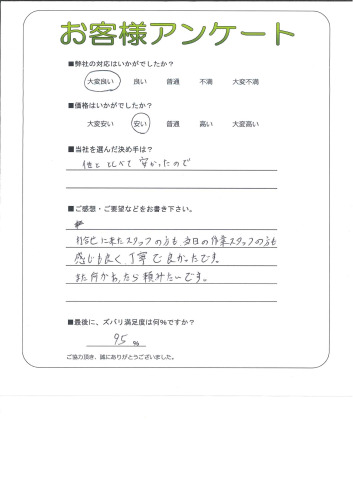 お客様アンケート
■弊社の対応はいかがでしたか？
大変良い 良い 普通 不満 大変不満
■価格はいかがでしたか？
大変安い 安い 普通 高い 大変高い
■当社を選んだ決め手は？
他と比べて安かったので
■ご感想・ご要望などをお書き下さい。
打合せに来たスタッフの方も当日の作業スタッフの方も
感じも良く丁寧で良かったです。
また何かあったら頼みたいです。
■最後に、ズバリ満足度は何%ですか？
95 %
ご協力頂き、誠にありがとうございました。